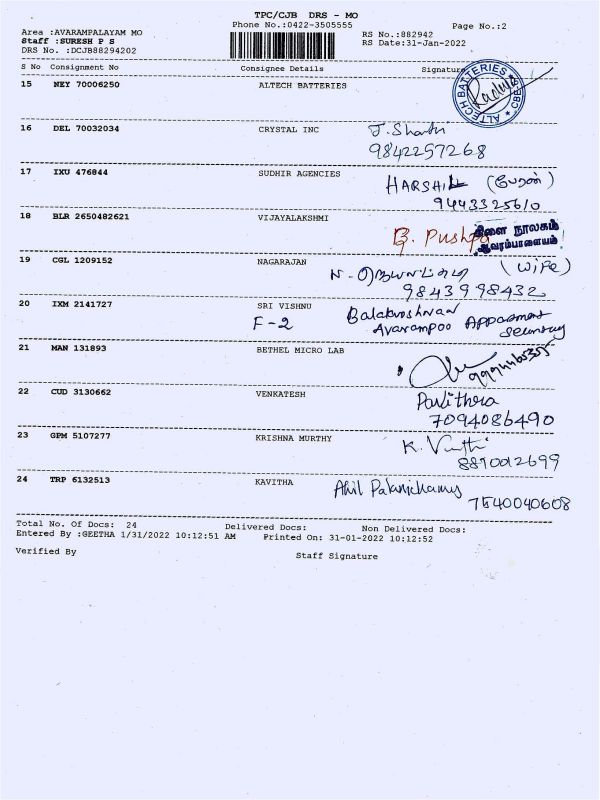 TPC/CJB DRS - MO
Phone No.:0422-3505555
Page No.:2
Area :AVARAMPALAYAM MO
RS No.:882942
Staff :SURESH P S
RS Date:31-Jan-2022
DRS No. :DCJB88294202
S No Consignment No Consignee Details Signature
15 NEY 70006250 ALTECH BATTERIES
ALTECH BATTERIES CBE
16 DEL 70032034 CRYSTAL INC
9842257268
17 IXU 476844 SUDHIR AGENCIES
HARSHIL (பேரன்)
9443325610
18 BLR 2650482621 VIJAYALAKSHMI
B. Pushpa
கிளை நூலகம்
ஆவரம்பாளையம்
19 CGL 1209152 NAGARAJAN
(Wife)
9843998432
20 IXM 2141727 SRI VISHNU
F-2
Avarampoo
21 MAN 131893 BETHEL MICRO LAB
22 CUD 3130662 VENKATESH
7094086490
23 GPM 5107277 KRISHNA MURTHY
8870012699
24 TRP 6132513 KAVITHA
7540040608
Total No. Of Docs: 24 Delivered Docs: Non Delivered Docs:
Entered By :GEETHA 1/31/2022 10:12:51 AM Printed On: 31-01-2022 10:12:52
Verified By Staff Signature